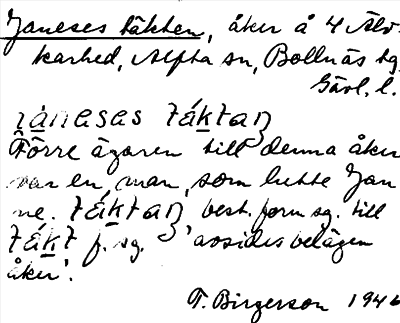 Janeses täkten, åker å 4 Älv-
karhed, Alfta sn, Bollnäs tg.
Gävl. l.
jàneses táktan
Förre ägaren till denna åker
var en man, som hette Jan
ne. táktan best. form sg. till
tákt f. sg. 'avsides belägen
åker'.
T. Birgerson 1946